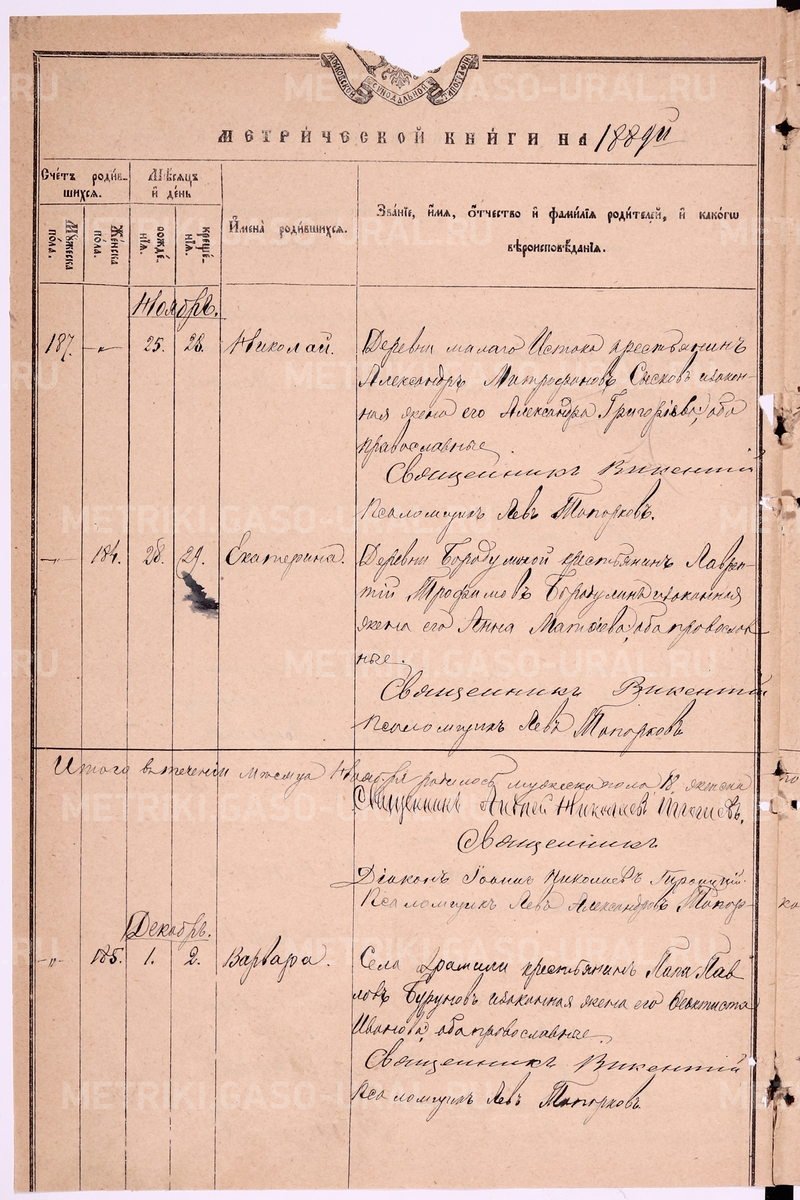 МОСКОВСКОЙ СѴНОДАЛЬНОЙ ТИПОГРАФІИ
МЕТРИ́ЧЕСКОЙ КНИ́ГИ НА 1889й
Сче́тъ роди́в-
шихся.
Мꙋ́жеска по́ла.
Же́нска по́ла.
Мѣ́сяцъ
и де́нь
рожде́нїя.
креще́нїя.
И҆мена̀ роди́вшихся.
Зва́нїе, и҆́мя, ѻ҆́тчество и҆ фами́лїя роди́телей, и҆ како́гѡ
вѣроисповѣ́данїя.
Ноябрь.
187. — „ — 25. 28. Николай. Деревни малаго Истока крестьянинъ
Александръ Митрофановъ Сысковъ и закон-
ная жена его Александра Григоріева, оба
православные
Священникъ Викентій
Псаломщикъ Левъ Топорковъ.
— „ — 184. 28. 29. Екатерина. Деревни Бородулиной крестьянинъ Лаврен-
тій Трофимовъ Бородулинъ и законная
жена его Анна Матѳіева, оба православ-
ные.
Священникъ Викентій
Псаломщикъ Левъ Топорковъ
Итого въ теченіи мѣсяца Ноября родилось мужеска пола 18, женска
Священникъ Андрей Николаевъ
Священникъ
Діаконъ Іоаннъ Николаевъ
Псаломщикъ Левъ Александровъ Топор-
Декабрь.
— „ — 185. 1. 2. Варвара. Села Арамили крестьянинъ Папа Пав-
ловъ Буруновъ и законная жена его Феоктиста
Иванова, оба православные.
Священникъ Викентій
Псаломщикъ Левъ Топорковъ
METRIKI.GASO-URAL.RU